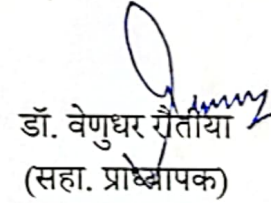 डॉ. वेणुधर रौतीया
(सहा. प्राध्यापक)